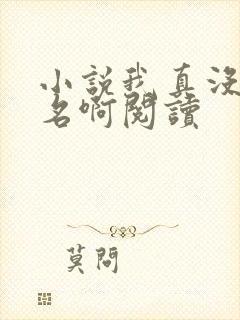 小說我真沒
名啊閱讀
莫問